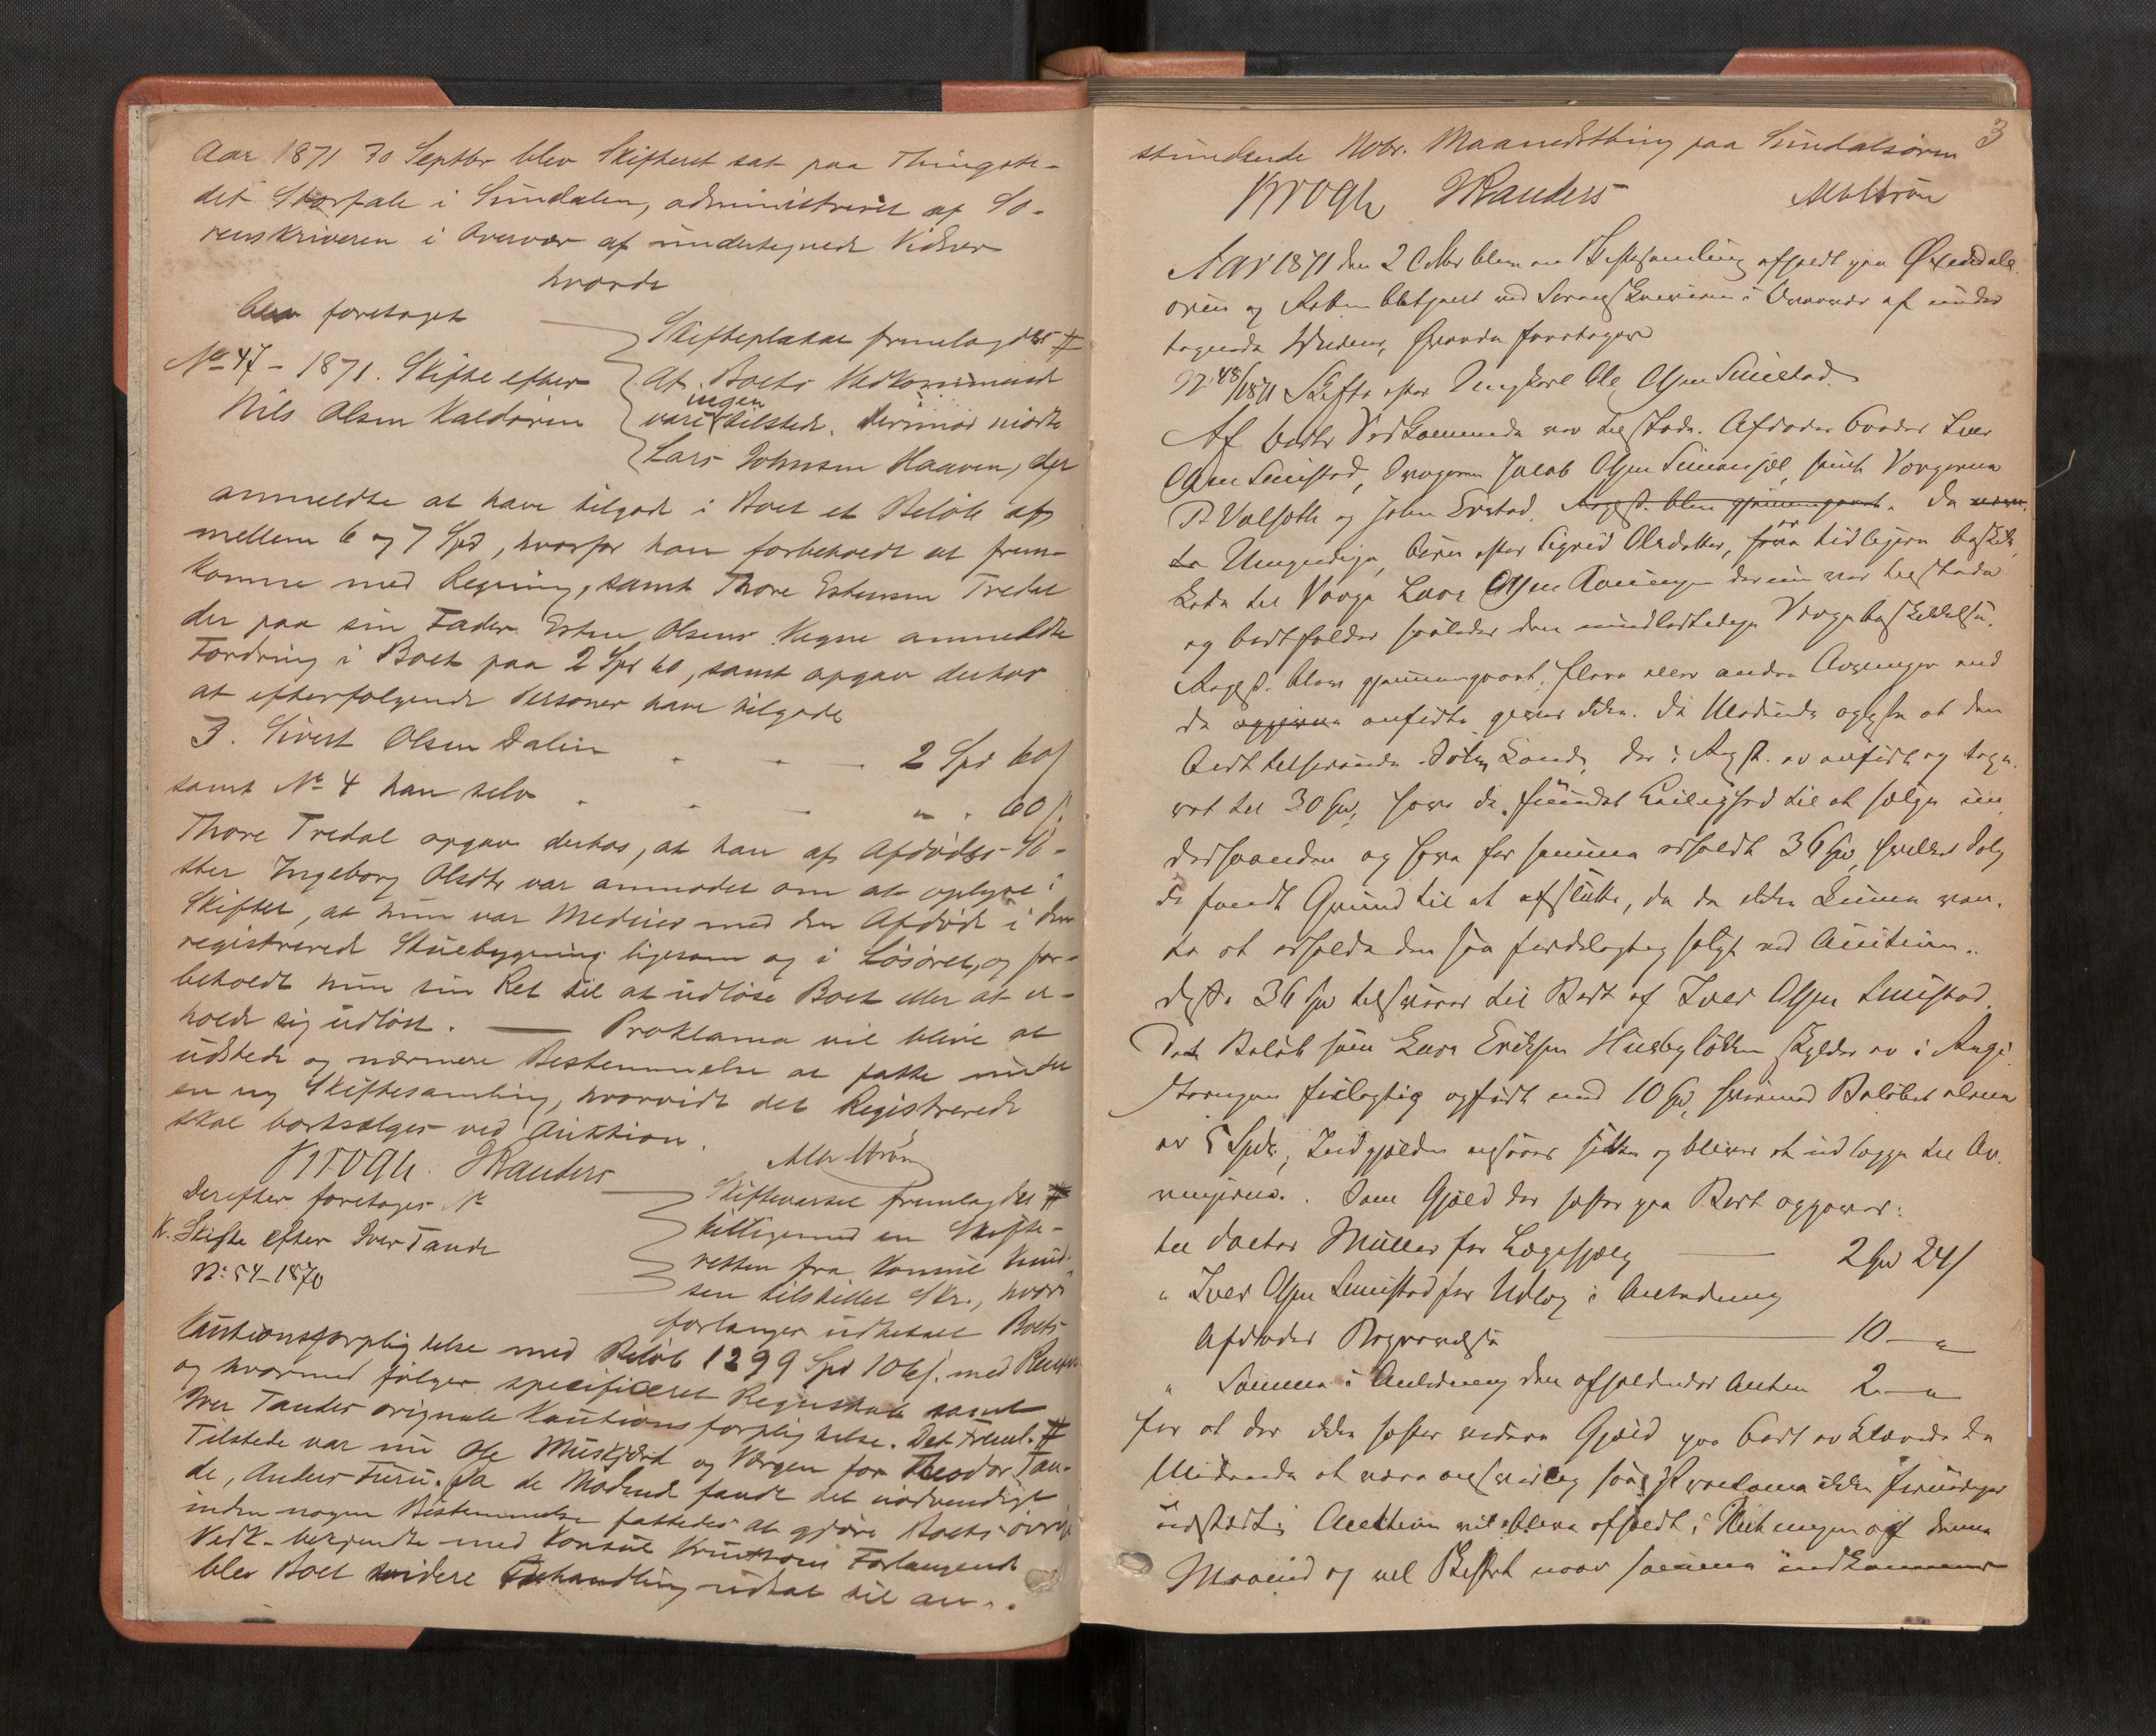 Aar 1871 30 Septbr blev Skifteret sat paa Thingste-
det Storfale i Sundalen, administreret af So-
renskriveren i Overvær af undertegnede Vidner
hvorda
blev foretaget
No 47 - 1871. Skifte efter
Nils Olsen Kaldøren
Skifteplakat fremlagdes #
Af Boets Vedkommende
vare ingen tilstede. Derimod mødte
Lars Johnsen Haaven, der
anmeldte at have tilgode i Boet et Beløb af
mellem 6 og 7 Spd, hvorfor han forbeholdt at frem-
komme med Regning, samt Thore Estensen Tredal
der paa sin Fader Esten Olsens Vegne anmeldte
Fordring i Boet paa 2 Spd 60, samt opgav derhos
at efterfølgende Personer have tilgode
3. Sivert Olsen Dalen 2 Spd 60 s
samt No 4 han selv " . 60 s.
Thore Tredal opgav derhos, at han af Afdødes Sø-
ster Ingeborg Olsdtr var anmodet om at oplyse i
Skiftet, at hun var Medeier med den Afdøde i den
registrerede Stuebygning ligesom og i Løsøret, og for-
beholdt hun sin Ret til at udløse Boet eller at er-
holde sig udløst. — Proklama vil blive at
udstede og nærmere Bestemmelse at fatte under
en ny Skiftesamling, hvorvidt det Registrerede
skal bortsælges ved Auktion.
Krogh. Randers
Derefter foretages No
K. Skifte efter Iver Tande
No 54-1870
Skiftevarsel fremlagdes #
tilligemed en Skifte-
retten fra Konsul Knud-
sen tilstillet Skr., hvori
forlanges udbetalt Boets
Kautionsforpligtelse med Beløb 1299 Spd 106 s. med Renter
og hvormed følger specificeret Regnskab samt
Iver Tandes originale Kautionsforpligtelse. Det Freml. #
Tilstede var nu Ole Muskjørt og Værgen for Theodor Tan-
de, Anders Furu. Da de Mødende fandt det nødvendigt
inden nogen Bestemmelse fattedes at gjøre Boets øvrige
Vedk. bekjendte med Konsul Knudtsons Forlangende
blev Boet videre Behandling udsat til an-
3
stundende Nobr. Maanedsthing paa Sundalsøren
Krogh Randers
Aar 1871 den 2 Oktbr blev en Skiftesamling afholdt paa Øxendals
øren og Retten betjent ved Sorenskriveren i Overvær af under
tegnede Vidner, Hvorda foretages
No 48/1871 Skifte efter Ungkarl Ole Olsen Smistad
Af Boets Vedkommende var tilstede. Afdødes Broder Iver
Olsen Smistad, Svogeren Jacob Olsen, samt Værgerne
P. Valseth og John Erstad. Regst. blev gjennemgaaet. Da
Umyndige, Børn efter Sigrid Olsdatter, er tidligere beskik
kede til Værge Lars Olsen der nu var tilstede
og bortfalder saaledes den midlertidige Værgebeskikkelse.
Regst. blev gjennemgaaet; flere eller andre Arvinger end
de opgivne anførte gives ikke. De Mødende oplyste at den
Boet tilhørende Sølvkande, der i Regst. er anført og taxe-
ret til 30 Spd, have de fundet Leilighed til at sælge un
derhaanden og have for samme erholdt 36 Spd, hvilket Salg
de fandt Grund til at afslutte, da de ikke kunne ven-
te at erholde den saa fordelagtig solgt ved Auction.
Disse 36 Spd tilsvarer til Boet af Iver Olsen Smistad.
Det Beløb som Lars Eriksen Husbyløkken skylder er i Regi
streringen feilagtig opført med 10 Spd, hvorimod Beløbet alene
er 5 Spdr, Indgjælden ansees sikker og bliver at udlægge til Ar
vingerne. Som Gjæld der hefter paa Boet opgaves:
til Doctor Müller for Lægehjælp — 2 Spd 24 s
" Iver Olsen Smistad for Udlæg i Anledning
Afdødes Begravelse — 10 — "
" Samme i Anledning den afholdende Auktion 2 — "
for at der ikke hefter videre Gjæld paa Boet erklærede de
Mødende at være ansvarlig saa Proclama ikke fornødiges
udstedt. Auction vil blive afholdt i Slutningen af denne
Maaned og vil Skiftet naar samme indkommer